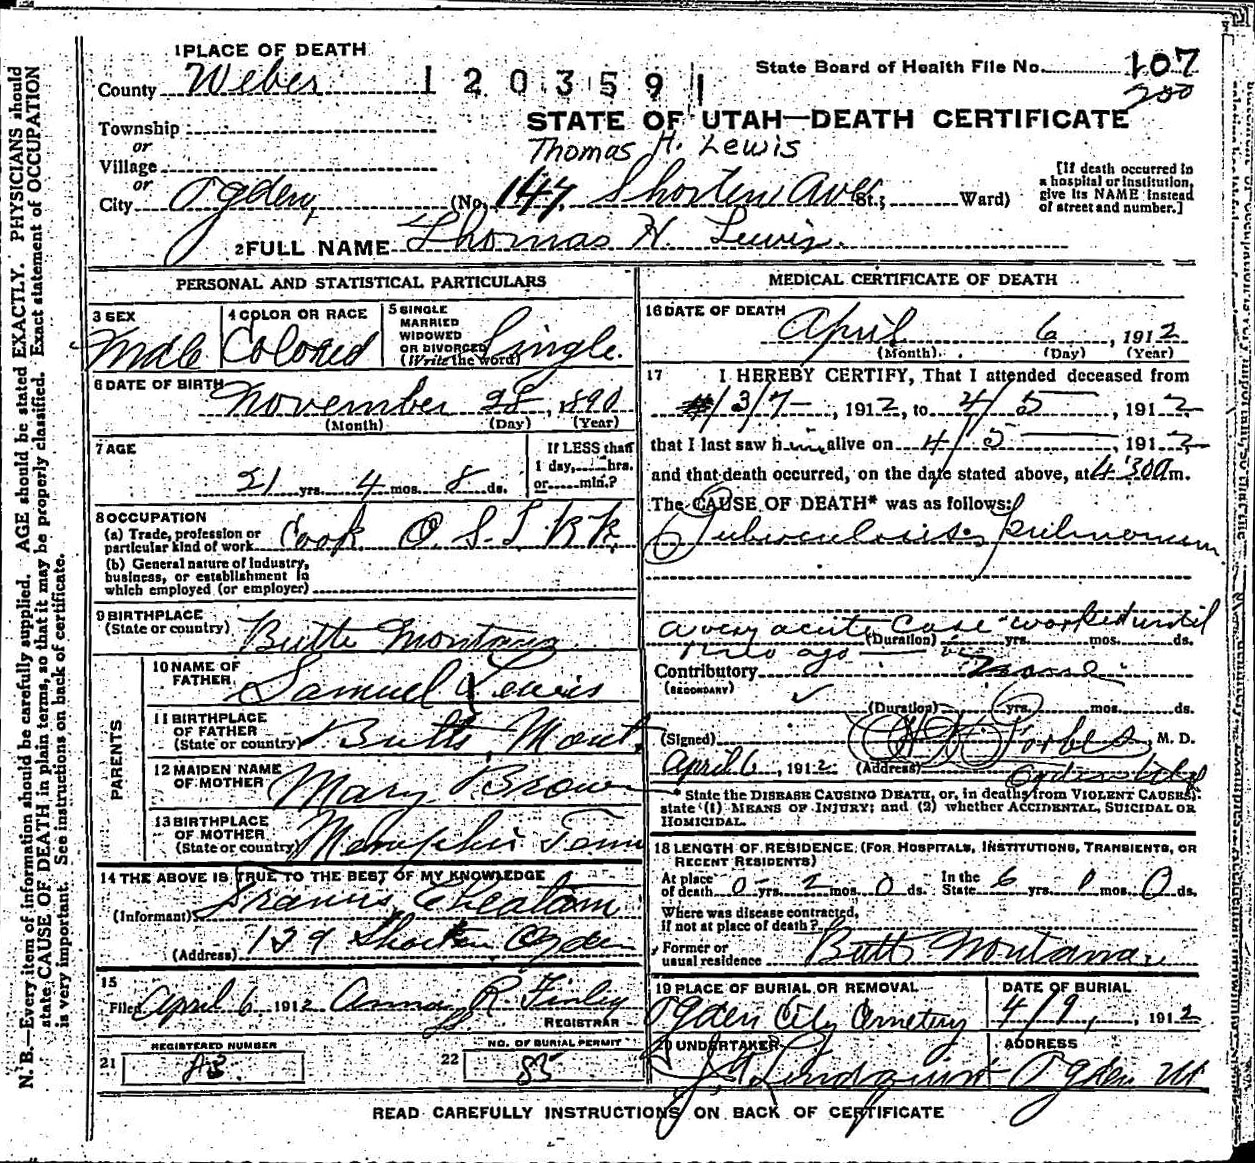 1 PLACE OF DEATH
County Weber 120359
State Board of Health File No. 107
200
STATE OF UTAH—DEATH CERTIFICATE
Township
or
Village
Thomas H. Lewis
or
City Ogden, (No. 147 Shorten Ave St.; Ward)
[If death occurred in
a hospital or institution,
give its NAME instead
of street and number.]
2 FULL NAME Thomas H. Lewis.
PERSONAL AND STATISTICAL PARTICULARS
3 SEX
Male
4 COLOR OR RACE
Colored
5 SINGLE
MARRIED
WIDOWED
OR DIVORCED
(Write the word)
Single.
6 DATE OF BIRTH
November 28, 1890
(Month) (Day) (Year)
7 AGE
21 yrs. 4 mos. 8 ds.
If LESS than
1 day, hrs.
or min.?
8 OCCUPATION
(a) Trade, profession or
particular kind of work Cook O. S. L RR
(b) General nature of industry,
business, or establishment in
which employed (or employer)
9 BIRTHPLACE
(State or country) Butte Montana
PARENTS
10 NAME OF
FATHER Samuel Lewis
11 BIRTHPLACE
OF FATHER
(State or country) Butte, Mont.
12 MAIDEN NAME
OF MOTHER Mary Brown
13 BIRTHPLACE
OF MOTHER
(State or country) Memphis Tenn
14 THE ABOVE IS TRUE TO THE BEST OF MY KNOWLEDGE
(Informant) Cheatom
(Address) 139 Shorten Ogden
15
Filed April 6 1912 Anna R. Finley
REGISTRAR
REGISTERED NUMBER
21
NO. OF BURIAL PERMIT
22 85
MEDICAL CERTIFICATE OF DEATH
16 DATE OF DEATH
April 6, 1912
(Month) (Day) (Year)
17 I HEREBY CERTIFY, That I attended deceased from
3/7, 1912, to 4/5, 1912
that I last saw him alive on 4/5, 1912
and that death occurred, on the date stated above, at 4 30a m.
The CAUSE OF DEATH* was as follows:
Tuberculosis, pulmonum
a very acute case worked until
(Duration) yrs. mos. ds.
1 mo ago
Contributory None
(SECONDARY)
(Duration) yrs. mos. ds.
(Signed) Forbes M. D.
April 6, 1912 (Address) Ogden Utah
* State the DISEASE CAUSING DEATH, or, in deaths from VIOLENT CAUSES,
state (1) MEANS OF INJURY; and (2) whether ACCIDENTAL, SUICIDAL OR
HOMICIDAL.
18 LENGTH OF RESIDENCE (FOR HOSPITALS, INSTITUTIONS, TRANSIENTS, OR
RECENT RESIDENTS)
At place
of death 0 yrs. 2 mos. 0 ds. In the
State 6 yrs. 0 mos. 0 ds.
Where was disease contracted,
if not at place of death?
Former or
usual residence Butte Montana
19 PLACE OF BURIAL OR REMOVAL
Ogden City Cemetery
DATE OF BURIAL
4/9, 1912
20 UNDERTAKER
Lindquist
ADDRESS
Ogden Ut
READ CAREFULLY INSTRUCTIONS ON BACK OF CERTIFICATE
N. B.—Every item of information should be carefully supplied. AGE should be stated EXACTLY. PHYSICIANS should
state CAUSE OF DEATH in plain terms, so that it may be properly classified. Exact statement of OCCUPATION
is very important. See instructions on back of certificate.